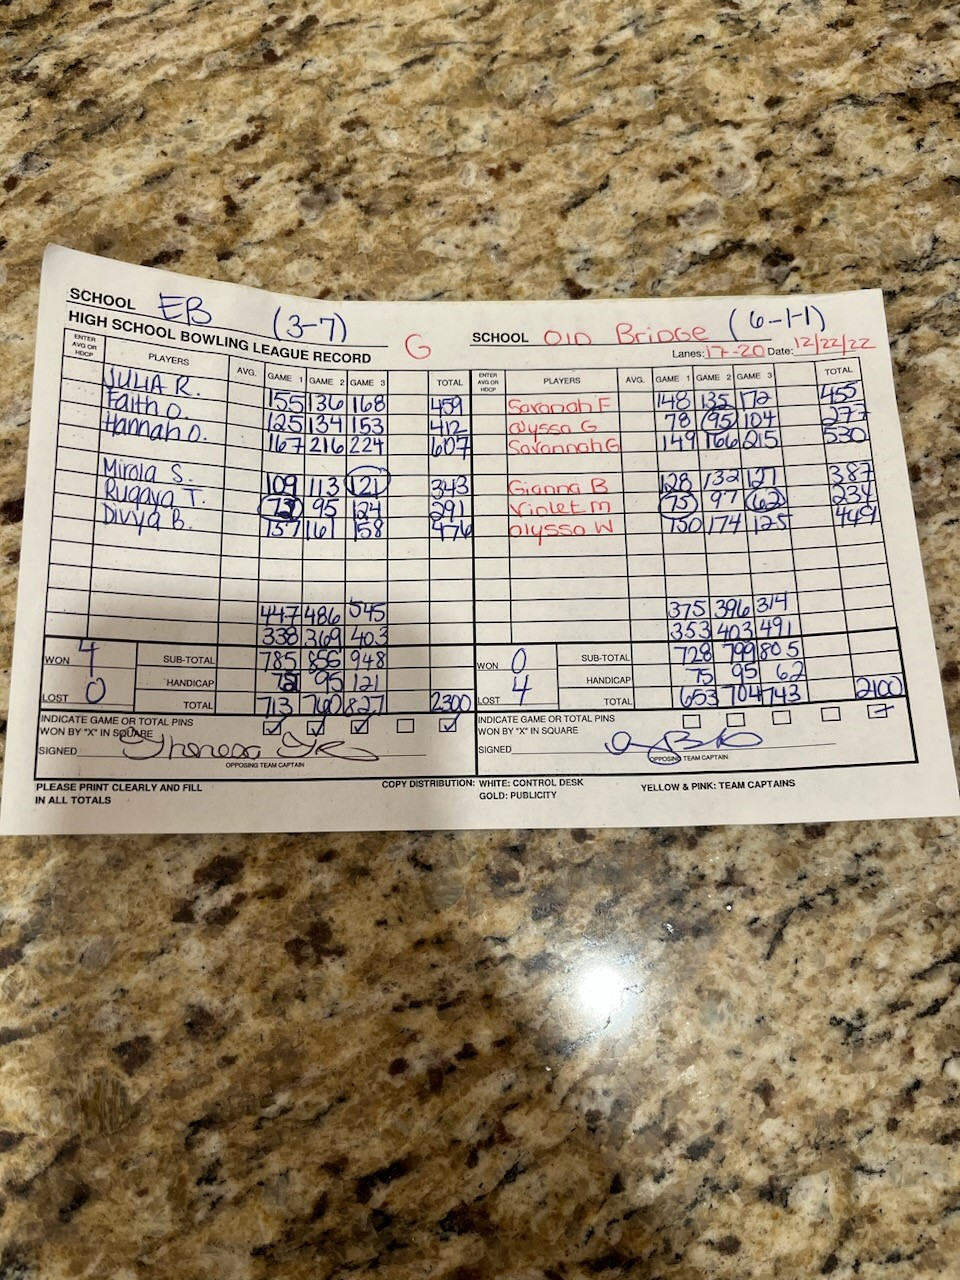 SCHOOL EB (3-7) SCHOOL Old Bridge (6-1-1)
HIGH SCHOOL BOWLING LEAGUE RECORD G Lanes: 17-20 Date: 12/22/22
ENTER AVG OR HDCP PLAYERS AVG. GAME 1 GAME 2 GAME 3 TOTAL ENTER AVG OR HDCP PLAYERS AVG. GAME 1 GAME 2 GAME 3 TOTAL
JULIA R. 155 136 168 459 Savanah F 148 135 172 455
Faith O. 125 134 153 412 alyssa G 78 95 104 277
Hannah O. 167 216 224 607 Savannah G 149 166 215 530
Mirola S. 109 113 121 343 Gianna B 128 132 127 387
Rugaya T. 95 124 291 Violet M 75 97 62 234
Divya B. 157 161 158 476 alyssa W 150 174 125 449
447 486 545 375 396 314
338 369 403 353 403 491
WON 4 SUB-TOTAL 785 948 WON 0 SUB-TOTAL 728 799 805
HANDICAP 95 121 HANDICAP 75 95 62
LOST 0 TOTAL 713 760 827 2300 LOST 4 TOTAL 653 704 743 2100
INDICATE GAME OR TOTAL PINS WON BY "X" IN SQUARE INDICATE GAME OR TOTAL PINS WON BY "X" IN SQUARE
SIGNED Theresa SIGNED
OPPOSING TEAM CAPTAIN OPPOSING TEAM CAPTAIN
PLEASE PRINT CLEARLY AND FILL COPY DISTRIBUTION: WHITE: CONTROL DESK YELLOW & PINK: TEAM CAPTAINS
IN ALL TOTALS GOLD: PUBLICITY